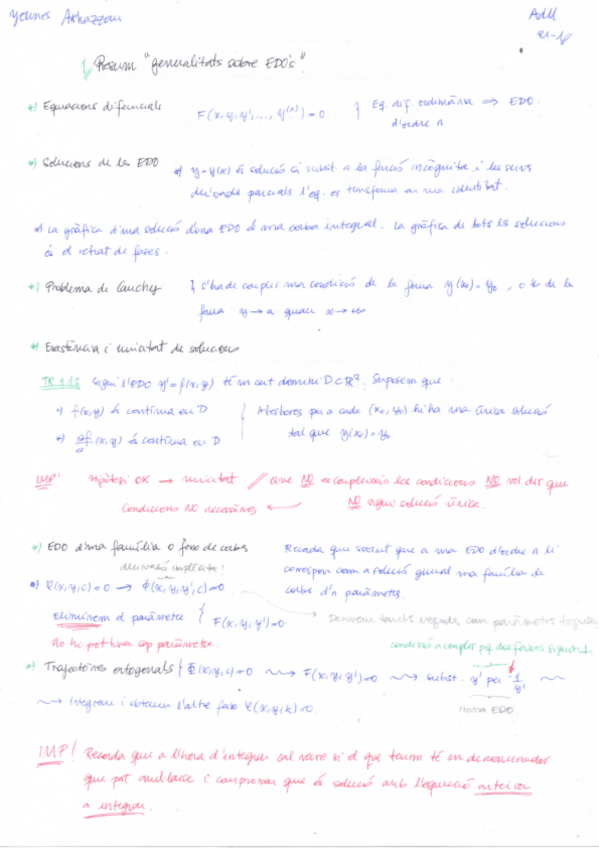 Younes Akhazzan
AdM
Resum "generalitats sobre EDO's"
*) Equacions diferencials F(x,y,y',...,y⁽ⁿ⁾)=0 } Eq. dif. ordinària ⟹ EDO
d'ordre n
*) Solucions de les EDO *) y=y(x) és solució si subst. a la funció incògnita i les seves
derivades parcials l'eq. es transforma en una identitat.
*) La gràfica d'una solució d'una EDO és una corba integral. La gràfica de tots les solucions
és el retrat de fases.
*) Problema de Cauchy } s'ha de complir una condició de la forma y(x₀)=y₀, o bé de la
forma y→a quan x→+∞
*) Existència i unicitat de solucions
TR 1.12 Sigui l'EDO y'=f(x,y) té un cert domini D⊂ℝ². Suposem que:
*) f(x,y) és contínua en D { Aleshores per a cada (x₀,y₀) hi ha una única solució
*) ∂f (x,y) és contínua en D tal que y(x₀)=y₀
IMP! Hipòtesi OK → unicitat // que NO es compleixin les condicions NO vol dir que
Condicions NO necessàries ← NO sigui solució única.
*) EDO d'una família o feix de corbes Recorda que sovint que a una EDO d'ordre n li
derivació implícita! correspon com a solució general una família de
*) φ(x,y,c)=0 → ϕ(x,y,y',c)=0 corbes d'n paràmetres.
Eliminem el paràmetre { F(x,y,y')=0 Derivem tantes vegades com paràmetres
No hi pot haver cap paràmetre. condició a complir pq dos feixos siguin ⊥
*) Trajectòries ortogonals { Φ(x,y,c)=0 ⇝ F(x,y,y')=0 ⇝ subst. y' per -1/y' ⇝
⇝ Integrem i obtenim l'altre feix φ(x,y,k)=0. nova EDO
IMP! Recorda que a l'hora d'integrar cal veure si el que tenim té un denominador
que pot anul·lar-se i comprovar que és solució amb l'equació anterior
a integrar.